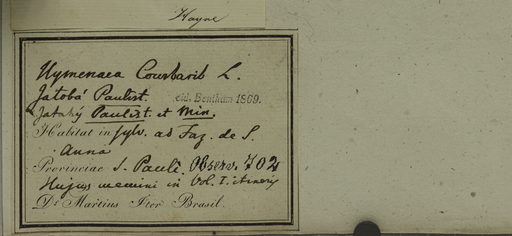 Hayne
Hymenaea Courbaril L.
Jatobá Paulist. vid. Bentham 1869.
Jatahÿ Paulist. et Min.
Habitat in sylv. ad Faz. de S.
Anna
Provinciae S. Pauli. Observ. 702
Hujus memini in Vol. I. itineris
Dr Martius Iter Brasil.